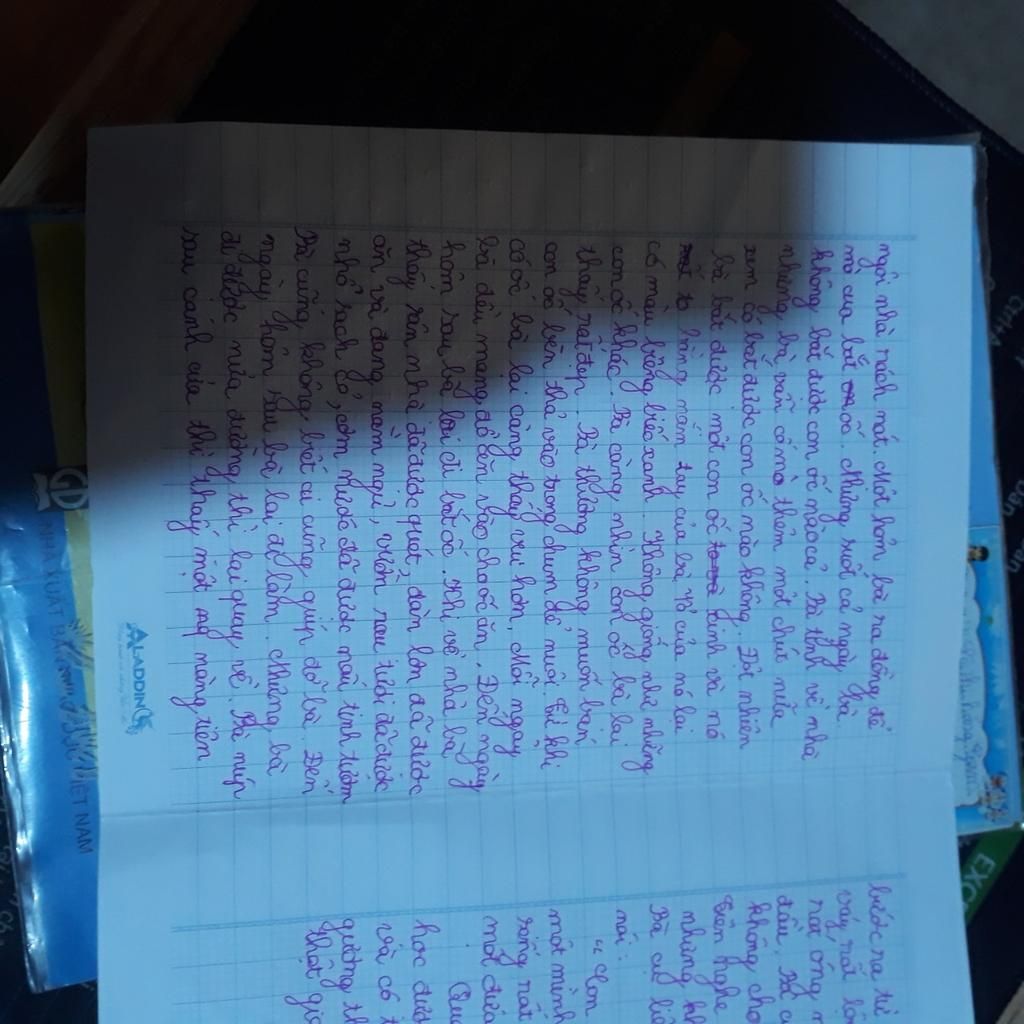 ngôi nhà rách nát. Một hôm bà ra đồng để
mò cua bắt ốc. Nhưng suốt cả ngày bà
không bắt được con ốc nào cả. Bà định về nhà
nhưng bà vẫn cố mò thêm một chút nữa
xem có bắt được con ốc nào không. Đột nhiên
bà bắt được một con ốc xinh và nó
to bằng nắm tay của bà. Vỏ của nó lại
có màu biêng biếc xanh. Không giống như những
con ốc khác. Bà càng nhìn con ốc bà lại
thấy rất đẹp. Bà thương không muốn bán
con ốc bèn thả vào trong chum để nuôi. Từ khi
có ốc bà lại càng thấy vui hơn, Mỗi ngày
bà đều mang đồ ăn vào cho ốc ăn. Đến ngày
hôm sau, bà lại đi bắt ốc. Khi về nhà bà
thấy sân nhà đã được quét, đàn lợn đã được
ăn và đang nằm ngủ, vườn rau tươi đã được
nhổ sạch cỏ, cơm nước đã được nấu tinh tươm
Bà cũng không biết ai cũng giúp đỡ bà. Đến
ngày hôm sau bà lại đi làm. Nhưng bà
đi được nửa đường thì lại quay về. Bà núp
sau cánh cửa thì thấy một nàng tiên
ALADDIN
NHÀ XUẤT BẢN GIÁO DỤC VIỆT NAM
bước ra từ
váy rất
nát ống
đâu. Bà
không cho
tiên nghe
nhưng
Bà cụ
nói:
" Con
một mình
sống rất
một đứa
học
và có
gương
thật